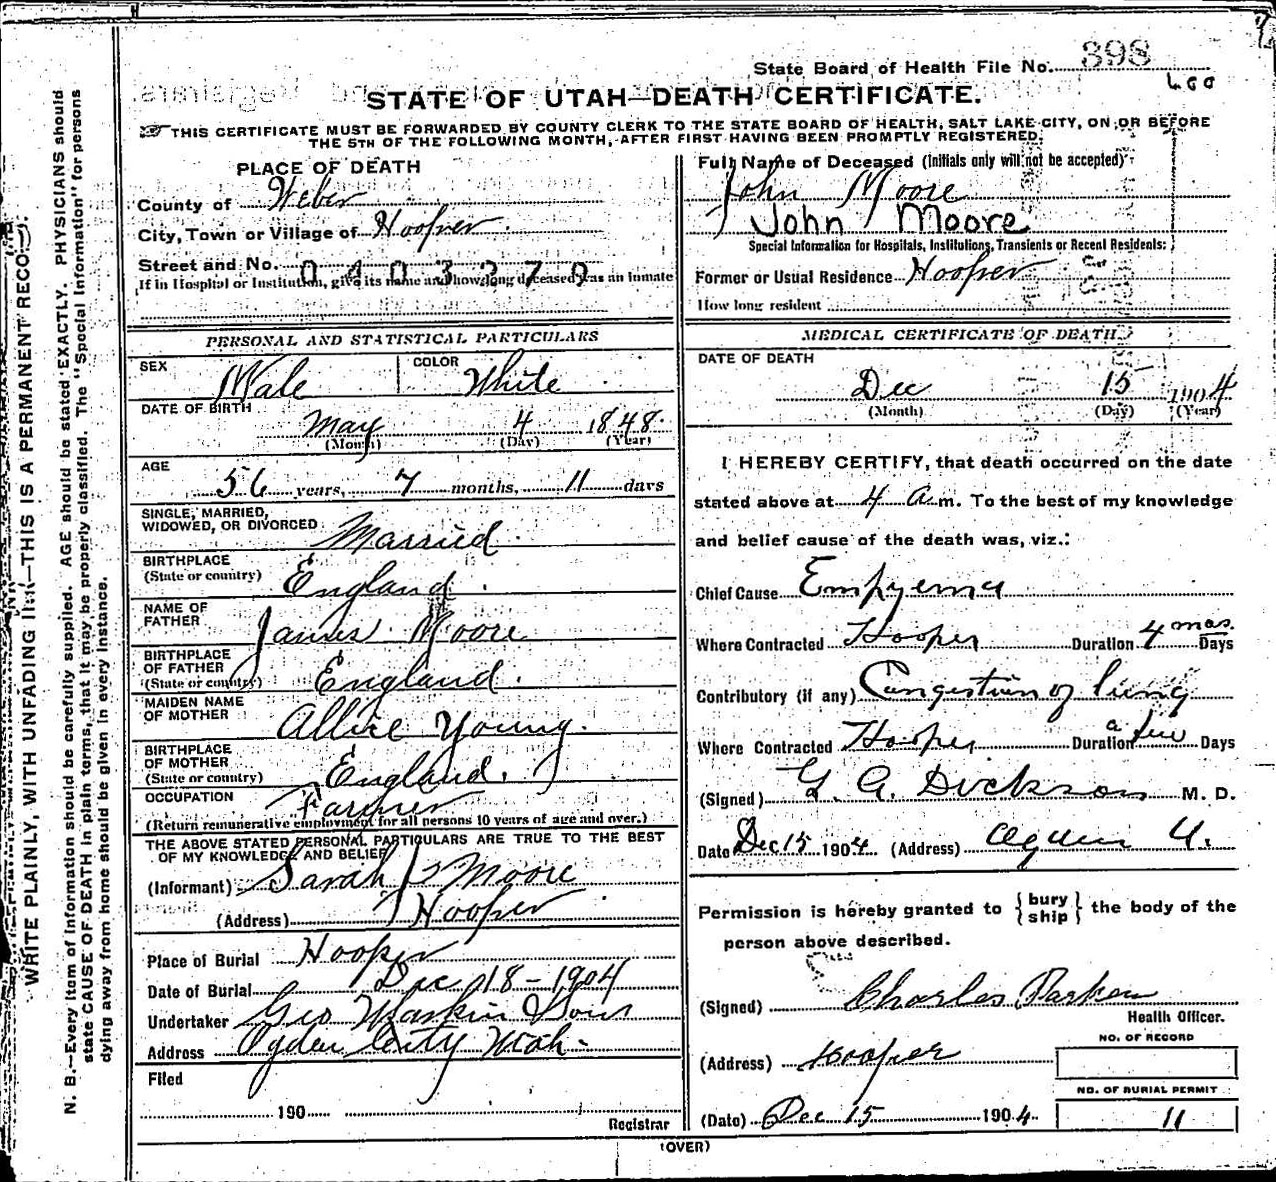 State Board of Health File No. 398
STATE OF UTAH—DEATH CERTIFICATE.
THIS CERTIFICATE MUST BE FORWARDED BY COUNTY CLERK TO THE STATE BOARD OF HEALTH, SALT LAKE CITY, ON OR BEFORE
THE 5TH OF THE FOLLOWING MONTH, AFTER FIRST HAVING BEEN PROMPTLY REGISTERED.
WRITE PLAINLY, WITH UNFADING INK—THIS IS A PERMANENT RECORD.
N. B.—Every item of information should be carefully supplied. AGE should be stated EXACTLY. PHYSICIANS should
state CAUSE OF DEATH in plain terms, that it may be properly classified. The "Special Information" for persons
dying away from home should be given in every instance.
PLACE OF DEATH
County of Weber
City, Town or Village of Hooper
Street and No. 0403270
If in Hospital or Institution, give its name and how long deceased was an inmate
PERSONAL AND STATISTICAL PARTICULARS
SEX Male COLOR White
DATE OF BIRTH
May 4 1848
(Month) (Day) (Year)
AGE
56 years, 7 months, 11 days
SINGLE, MARRIED,
WIDOWED, OR DIVORCED Married
BIRTHPLACE
(State or country) England
NAME OF
FATHER James Moore
BIRTHPLACE
OF FATHER
(State or country) England
MAIDEN NAME
OF MOTHER Allice Young
BIRTHPLACE
OF MOTHER
(State or country) England
OCCUPATION Farmer
(Return remunerative employment for all persons 10 years of age and over.)
THE ABOVE STATED PERSONAL PARTICULARS ARE TRUE TO THE BEST
OF MY KNOWLEDGE AND BELIEF
(Informant) Sarah Moore
(Address) Hooper
Place of Burial Hooper
Date of Burial Dec 18-1904
Undertaker Geo W Larkin & Sons
Address Ogden City Utah
Filed
190
Registrar
Full Name of Deceased (Initials only will not be accepted)
John Moore
John Moore
Special Information for Hospitals, Institutions, Transients or Recent Residents:
Former or Usual Residence Hooper
How long resident
MEDICAL CERTIFICATE OF DEATH
DATE OF DEATH
Dec 15 1904
(Month) (Day) (Year)
I HEREBY CERTIFY, that death occurred on the date
stated above at 4 a.m. To the best of my knowledge
and belief cause of the death was, viz.:
Chief Cause Empyema
Where Contracted Hooper Duration 4 mos. Days
Contributory (if any) Congestion of lung
Where Contracted Hooper Duration a few Days
(Signed) Dickson M. D.
Date Dec 15 1904 (Address) Ogden U.
Permission is hereby granted to {bury
ship} the body of the
person above described.
(Signed) Charles Parker
Health Officer.
(Address) Hooper
NO. OF RECORD
NO. OF BURIAL PERMIT
(Date) Dec 15 1904. 11
(OVER)